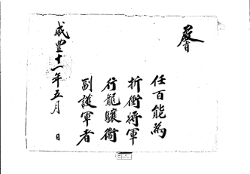 敎旨
任百能為
折衝將軍
行龍驤衛
副護軍者
咸豊十一年五月 日